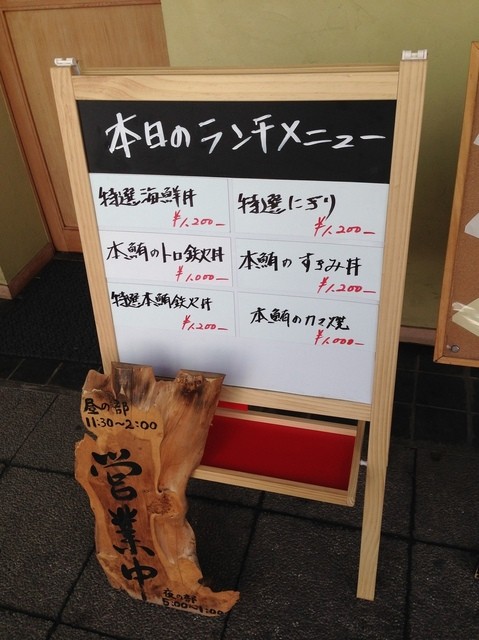 本日のランチメニュー
特選海鮮丼
¥1,200―
特選にぎり
¥1,200―
本鮪のトロ鉄火丼
¥1,000―
本鮪のすきみ丼
¥1,200―
特選本鮪鉄火丼
¥1,200―
本鮪のカマ焼
¥1,000―
昼の部
11:30〜2:00
営業中
夜の部
5:00〜1:00